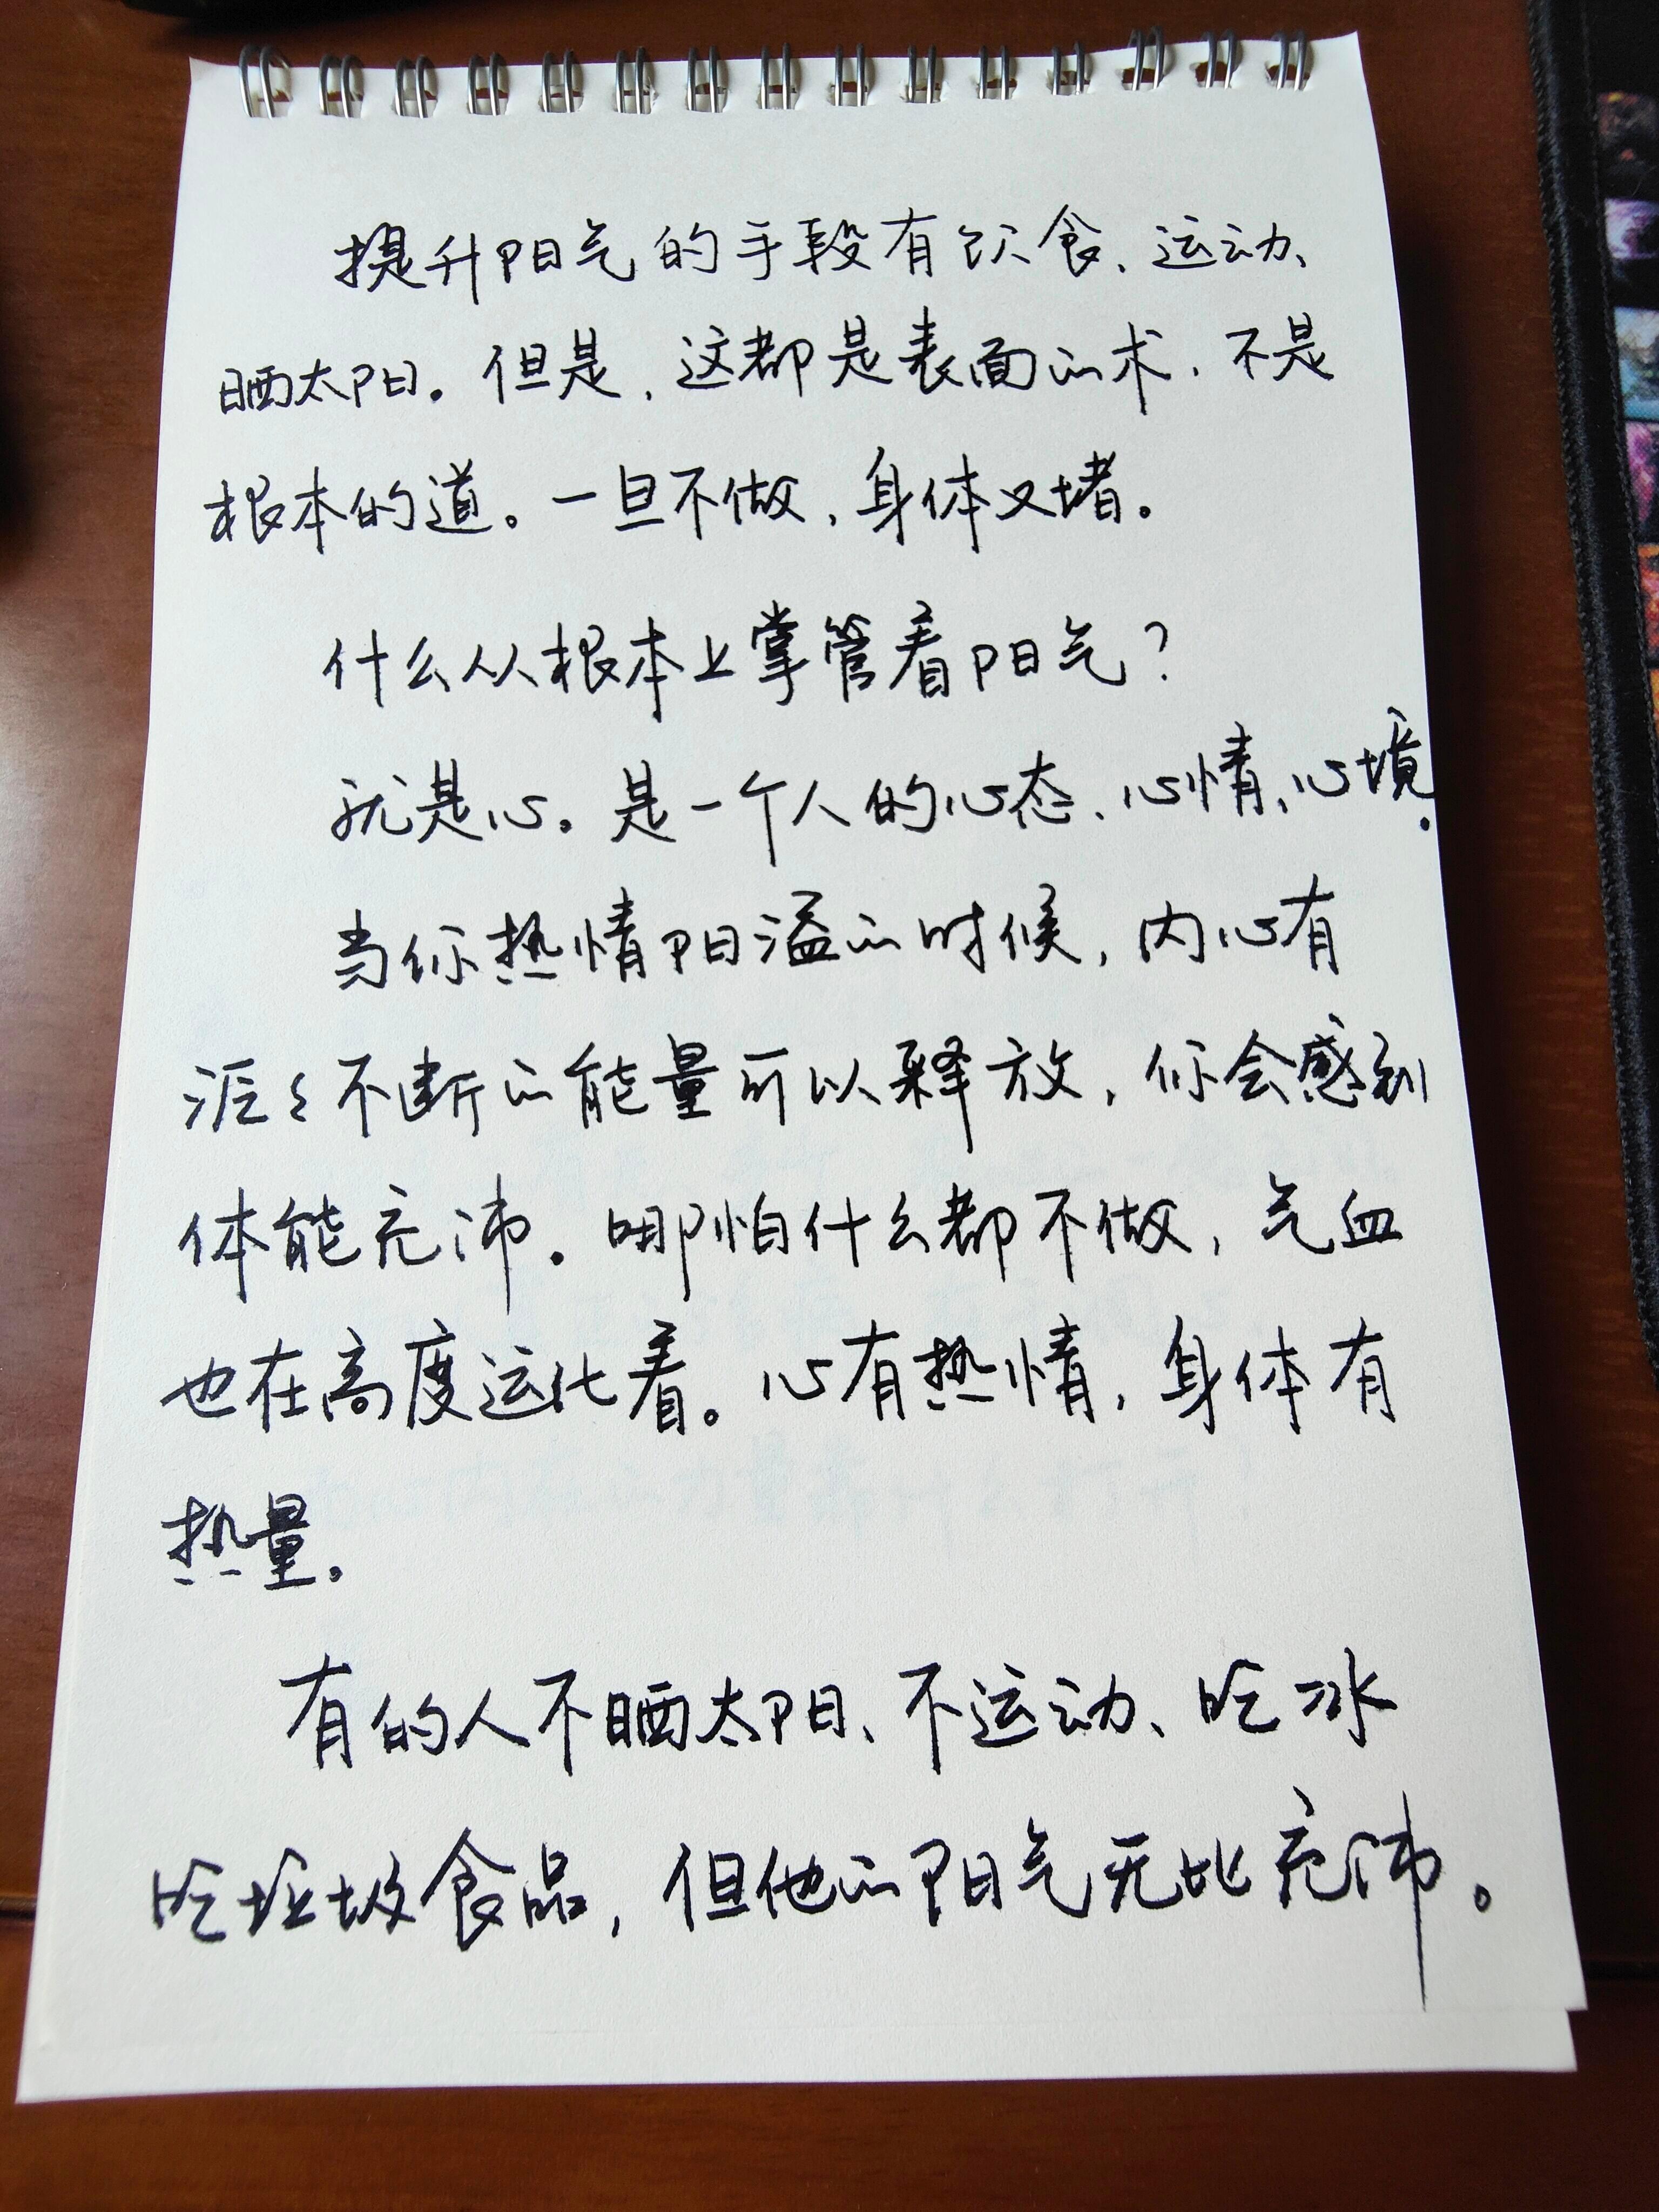 提升阳气的手段有饮食、运动、
晒太阳。但是,这都是表面的术,不是
根本的道。一旦不做,身体又堵。
什么从根本上掌管着阳气?
就是心。是一个人的心态、心情、心境.
当你热情阳溢的时候,内心有
源々不断的能量可以释放,你会感到
体能充沛。哪怕什么都不做,气血
也在高度运化着。心有热情,身体有
热量。
有的人不晒太阳、不运动、吃冰
吃垃圾食品,但他的阳气无比充沛。